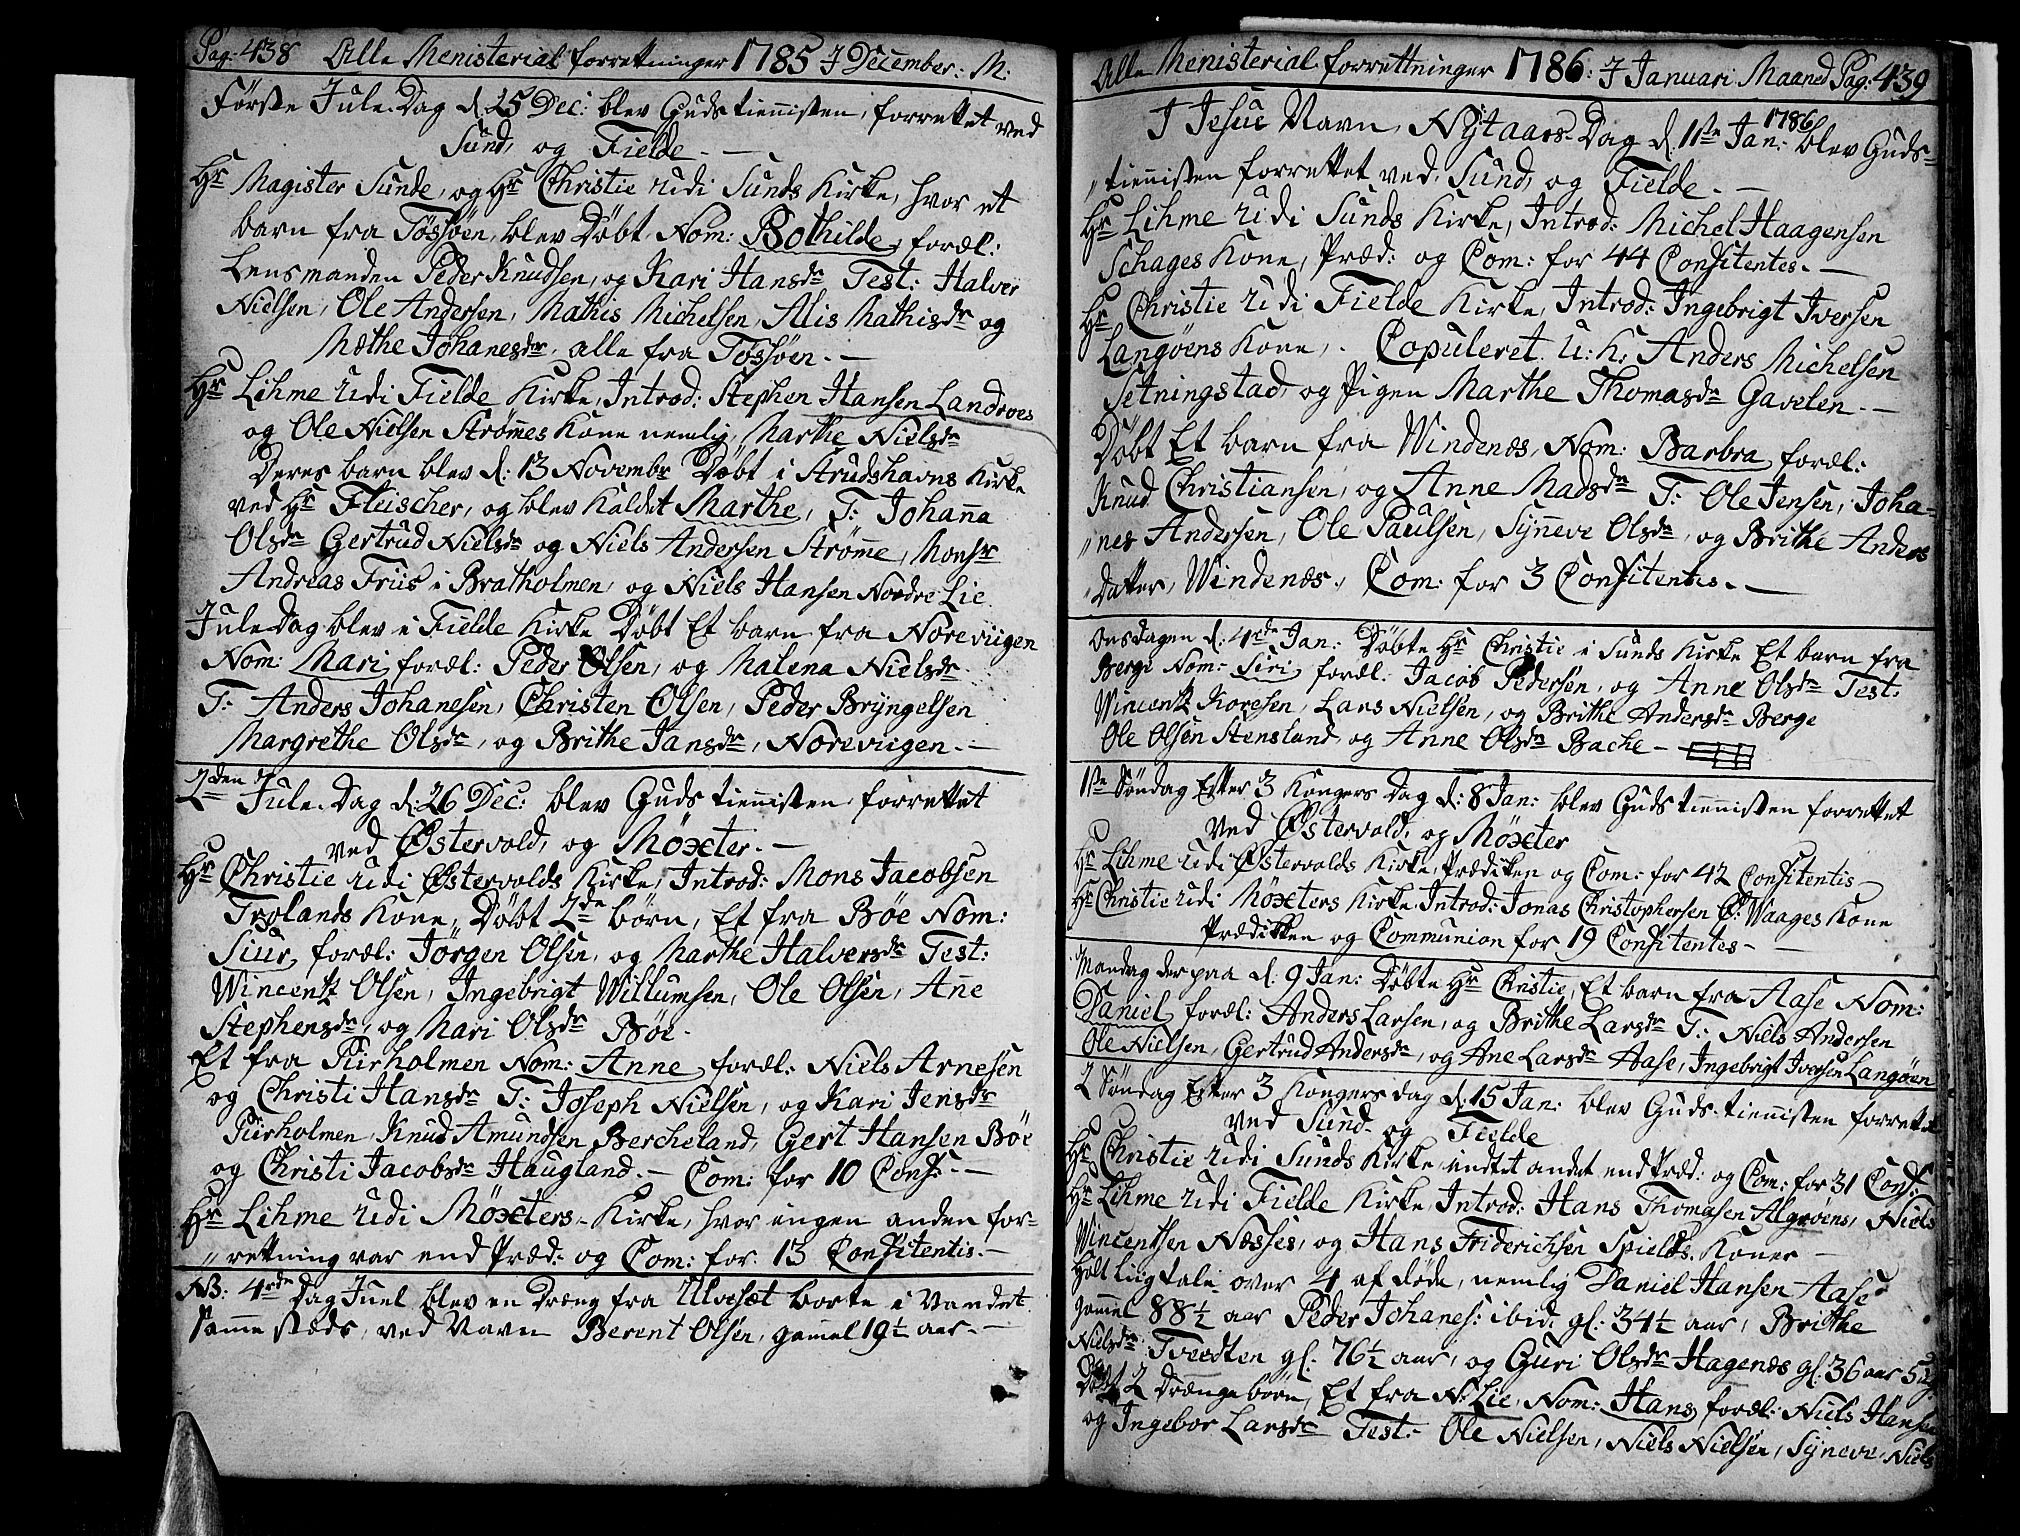 Pag: 438 Alle Menisterial forretninger 1785 J December: M:
Første Jule Dag d. 25 Dec: blev Guds tiennisten, forrettet ved
Sund, og Fielde. —
Hr Magister Sunde, og Hr Christie udi Sunds Kirke, hvor et
barn fra Tøssøen, blev Døbt, Nom: Bothilde, foræl:
Lensmanden Peder Knudsen, og Kari Hansdr Test: Halver
Nielsen, Ole Andersen, Mathis Michelsen, Alis Mathisdr og
Mæthe Johanesdr, alle fra Tøssøen. —
Hr Lihme udi Fielde Kirke, Introd: Stephen Hansen Landroes
og Ole Nielsen Strømes Kone nemlig, Marthe Nielsdr
Deres barn blev d: 13 Novembr Døbt i Strudshavns Kirke
ved Hr Fleischer, og blev Kaldet Marthe, T: Johana
Olsdr Gertrud Nielsdr og Niels Andersen Strømme, Monsr
Andreas Friis i Bratholmen, og Niels Hansen Nordre Lie
Jule Dag blev i Fielde Kirke Døbt Et barn fra Noreviigen
Nom: Mari, foræl: Peder Olsen, og Malena Nielsdr.
T: Anders Johanesen, Christen Olsen, Peder Bryngelsen
Margrethe Olsdr, og Brithe Jansdr, Noreviigen. —
2den Jule Dag d: 26 Dec: blev Guds tiennisten, forrettet
ved Østervold, og Møxter. —
Hr Christie udi Østervolds Kirke, Introd: Mons Jacobsen
Trolands Kone, Døbt 2de børn, Et fra Bøe Nom:
Siur, foræl: Jørgen Olsen, og Marthe Halversdr Test:
Wincentz Olsen, Ingebrigt Willumsen, Ole Olsen, Ane
Stephensdr, og Mari Olsdr Bøe.
Et fra Piirholmen Nom: Anne, foræl: Niels Arnesen
og Christi Hansdr T: Joseph Nielsen, og Kari Jensdr
Piirholmen, Knud Amundsen Bercheland, Gert Hansen Bøe
og Christi Jacobsdr Haugland. — Com: for 10 Conf: —
Hr Lihme udi Møxters Kirke, hvor ingen anden for-
„retning var end Præd: og Com: for 13 Confitentis. —
NB: 4rde Dag Juel blev en Dræng fra Ulvesæt borte i Vandet
samme stæds, ved Navn Berent Olsen, gamel 19½ aar. —
Alle Menisterial forrettninger 1786: J Januari Maaned Pag: 439
J Jesue Navn, Nytaars Dag d. 1ste Jan: 1786 blev Guds-
„tiennisten forrettet ved, Sund, og Fielde. —
Hr Lihme udi Sunds Kirke, Introd: Michel Haagensen
Schages Kone, Præd: og Com: for 44 Confitentes. —
Hr Christie udi Fielde Kirke, Introd: Ingebrigt Iversen
Langøens Kone, . Copuleret U: K: Anders Michelsen
Setningstad, og Pigen Marthe Thomasdr Gavelen. —
Døbt Et barn fra Windenæs, Nom: Barbra, foræl:
Knud Christiansen, og Anne Madsdr T: Ole Jensen, Joha-
„nes Andersen, Ole Paulsen, Synneve Olsdr, og Brithe Anders
Datter, Windenæs, Com: for 3 Confitentes. —
Onsdagen d: 4rde Jan: Døbte Hr Christie i Sunds Kirke Et barn fra
Berge Nom: Siri, foræl: Jacob Pedersen, og Anne Olsdr Test:
Wincentz Koresen, Lars Nielsen, og Brithe Andersdr Berge
Ole Olsen Stensland, og Anne Olsdr Bache —
1ste Søndag Efter 3 Kongers Dag d: 8 Jan: blev Guds tiennisten forrettet
Ved Østervold, og Møxter
Hr Lihme udi Østervolds Kirke, Prædiken og Com: for 42 Confitentis
Hr Christie udi Møxters Kirke, Introd: Jonas Christophersen Ø: Waages Kone
Prædikken og Communion for 19 Confitentes —
Mandag der paa d. 9 Jan: Døbte Hr Christie, Et barn fra Aase Nom:
Daniel, foræl: Anders Larsen, og Brithe Larsdr T: Niels Andersen
Ole Nielsen, Gertrud Andersdr, og Ane Larsdr Aase, Ingebrigt Iversen Langøen
2 Søndag Efter 3 Kongers dag d: 15 Jan: blev Guds tiennisten forrettet
ved Sund og Fielde
Hr Christie udi Sunds Kirke, indtet andet end Præd: og Com: for 31 Conf:
Hr Lihme udi Fielde Kirke, Introd: Hans Thomasen Algrøens, Niels
Wincentsen Næsses, og Hans Friderichsen Spields Koner —
Holt Liigtale over 4 af døde, nemlig Daniel Hansen Aase
gammel 88½ aar Peder Johanes: ibid: gl: 34½ aar, Brithe
Nielsdr: Tvedten gl: 76½ aar, og Guri Olsdr Hagenæs gl: 36 aar 5
Døbt 2 Drænge børn, Et fra N: Lie, Nom: Hans, foræl: Niels Hansen
og Ingebor Larsdr Test: Ole Nielsen, Niels Nielsen, Syneve Niels